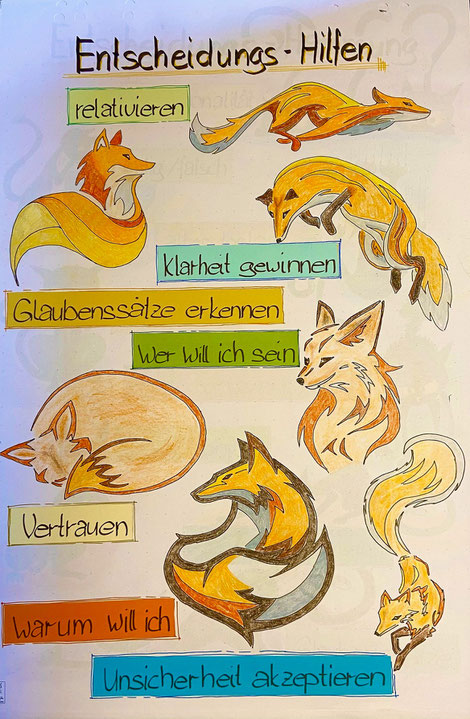 Entscheidungs-Hilfen
relativieren
Klarheit gewinnen
Glaubenssätze erkennen
Wer will ich sein
Vertrauen
Warum will ich
Unsicherheit akzeptieren